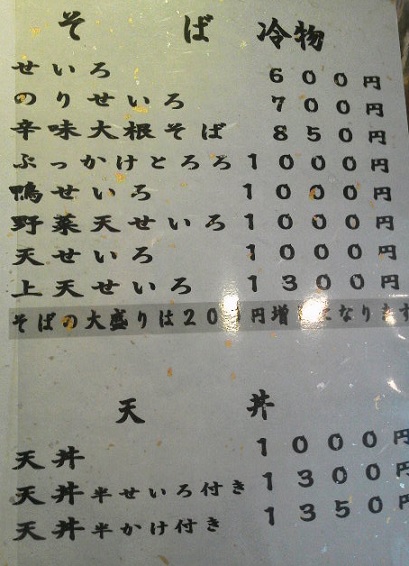 そば 冷物
せいろ 600円
のりせいろ 700円
辛味大根そば 850円
ぶっかけとろろ 1000円
鴨せいろ 1000円
野菜天せいろ 1000円
天せいろ 1000円
上天せいろ 1300円
そばの大盛りは200円増になります
天丼
天丼 1000円
天丼半せいろ付き 1300円
天丼半かけ付き 1350円